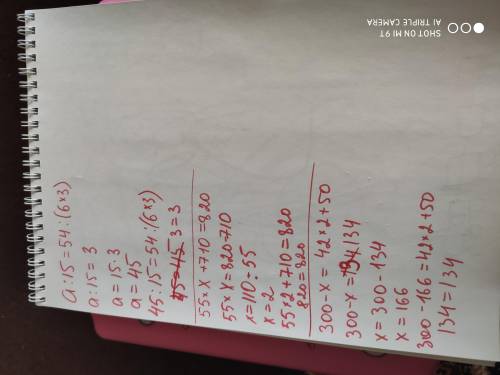 a:15=54:(6×3)
a:15=3
a=15·3
a=45
45:15=54:(6×3)
45=45 3=3
55×X+710=820
55×X=820-710
x=110:55
x=2
55×2+710=820
820=820
300-x=42×2+50
300-x=134
x=300-134
x=166
300-166=42×2+50
134=134
SHOT ON MI 9T
AI TRIPLE CAMERA